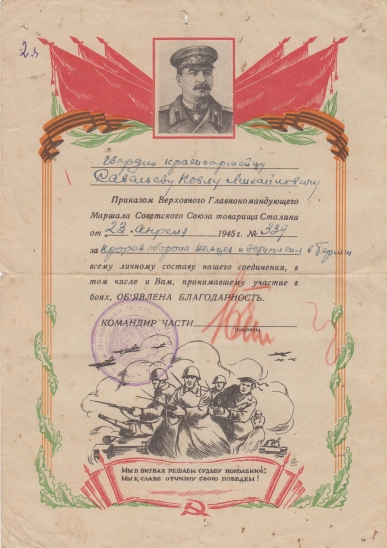 2я
Гвардии красноармейцу
Савельеву Павлу Михайловичу
Приказом Верховного Главнокомандующего
Маршала Советского Союза товарища Сталина
от 23 апреля 1945 г. № 339
за прорыв обороны немцев и вступление в Берлин
всему личному составу нашего соединения, в
том числе и Вам, принимавшему участие в
боях, ОБ'ЯВЛЕНА БЛАГОДАРНОСТЬ.
КОМАНДИР ЧАСТИ
(подпись)
МЫ В БИТВАХ РЕШАЕМ СУДЬБУ ПОКОЛЕНИЙ,
МЫ К СЛАВЕ ОТЧИЗНУ СВОЮ ПОВЕДЕМ!